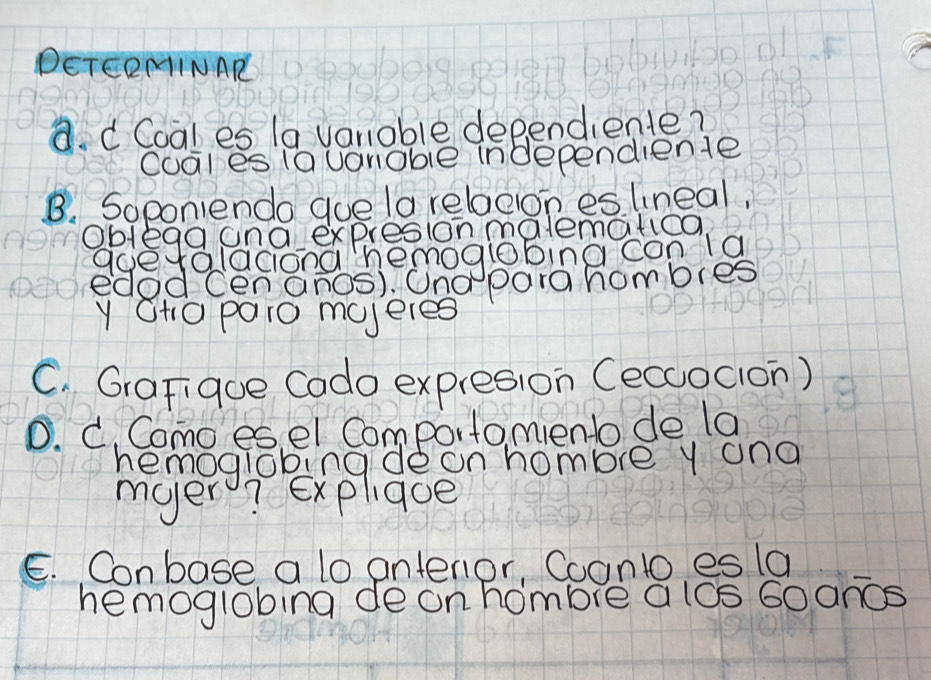 DETERMINAR
a. ¿ Cúal es la variable dependiente?
Cúal es la variable independiente
B. Suponiendo que la relación es lineal,
obtega una expresión matematica
que relaciona hemoglobina con la
edad (en años). Una para hombres
y otra para mujeres
C. Grafique cada expresion (ecuación)
D. ¿, Como es el comportamiento de la
hemoglobina de un hombre y una
mujer? Explique
E. Con base a lo anterior, Cuanto es la
hemoglobina de un hombre a los 60 años